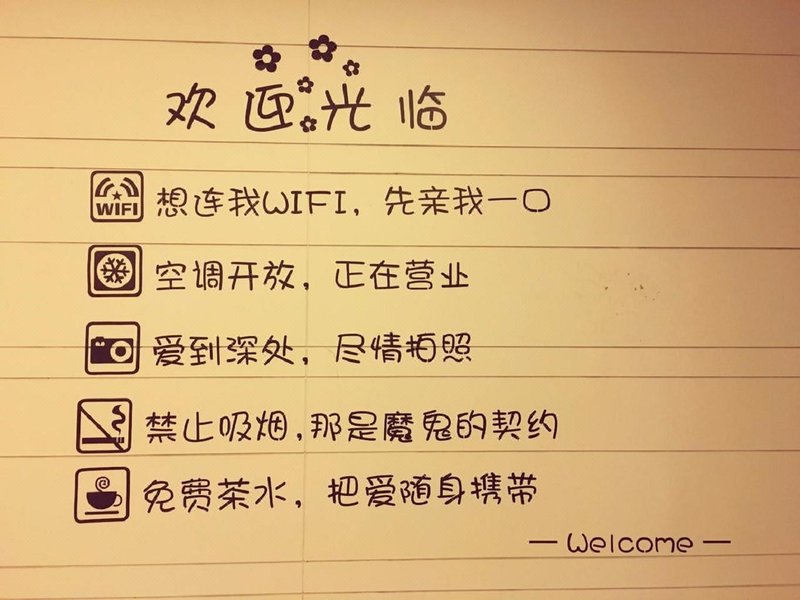 欢迎光临
WIFI 想连我WIFI，先亲我一口
空调开放，正在营业
爱到深处，尽情拍照
禁止吸烟,那是魔鬼的契约
免费茶水，把爱随身携带
— Welcome —